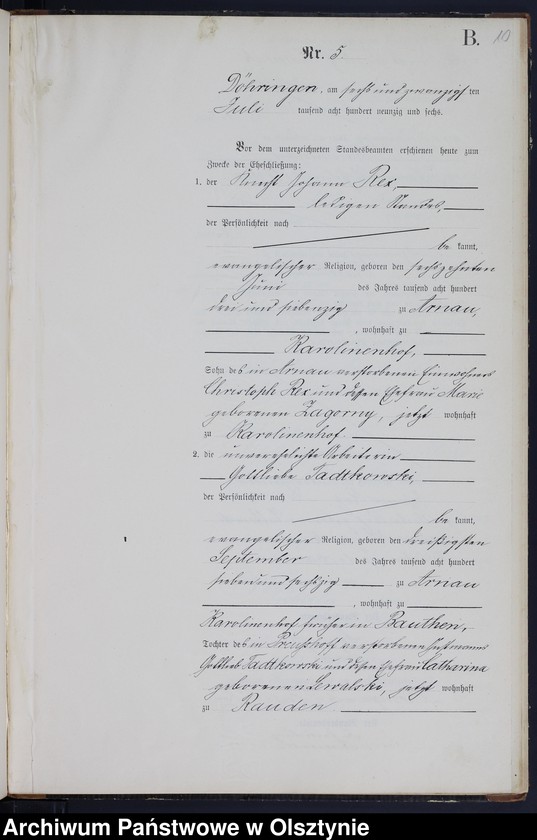 B. 10
Nr. 5.
Döhringen, am sechs und zwanzigs ten
Juli tausend acht hundert neunzig und sechs.
Vor dem unterzeichneten Standesbeamten erschienen heute zum
Zwecke der Eheschließung:
1. der Knecht Johann Rex,
ledigen Standes,
der Persönlichkeit nach
be kannt,
evangelischer Religion, geboren den sechszehnten
Juni des Jahres tausend acht hundert
drei und siebenzig zu Arnau,
, wohnhaft zu
Karolinenhof,
Sohn des in Arnau verstorbenen Einwohners
Christoph Rex und dessen Ehefrau Marie
geborenen Zagorny, jetzt wohnhaft
zu Karolinenhof.
2. die unverehelichte Arbeiterin
Gottliebe Tadtkowski,
der Persönlichkeit nach
be kannt,
evangelischer Religion, geboren den dreißigsten
September des Jahres tausend acht hundert
sieben und sechszig zu Arnau
, wohnhaft zu
Karolinenhof, früher in Bauthen,
Tochter des in verstorbenen Instmanns
Gottlieb Tadtkowski und dessen Ehefrau Catharina
geborenen Lewalski, jetzt wohnhaft
zu Rauden
Archiwum Państwowe w Olsztynie